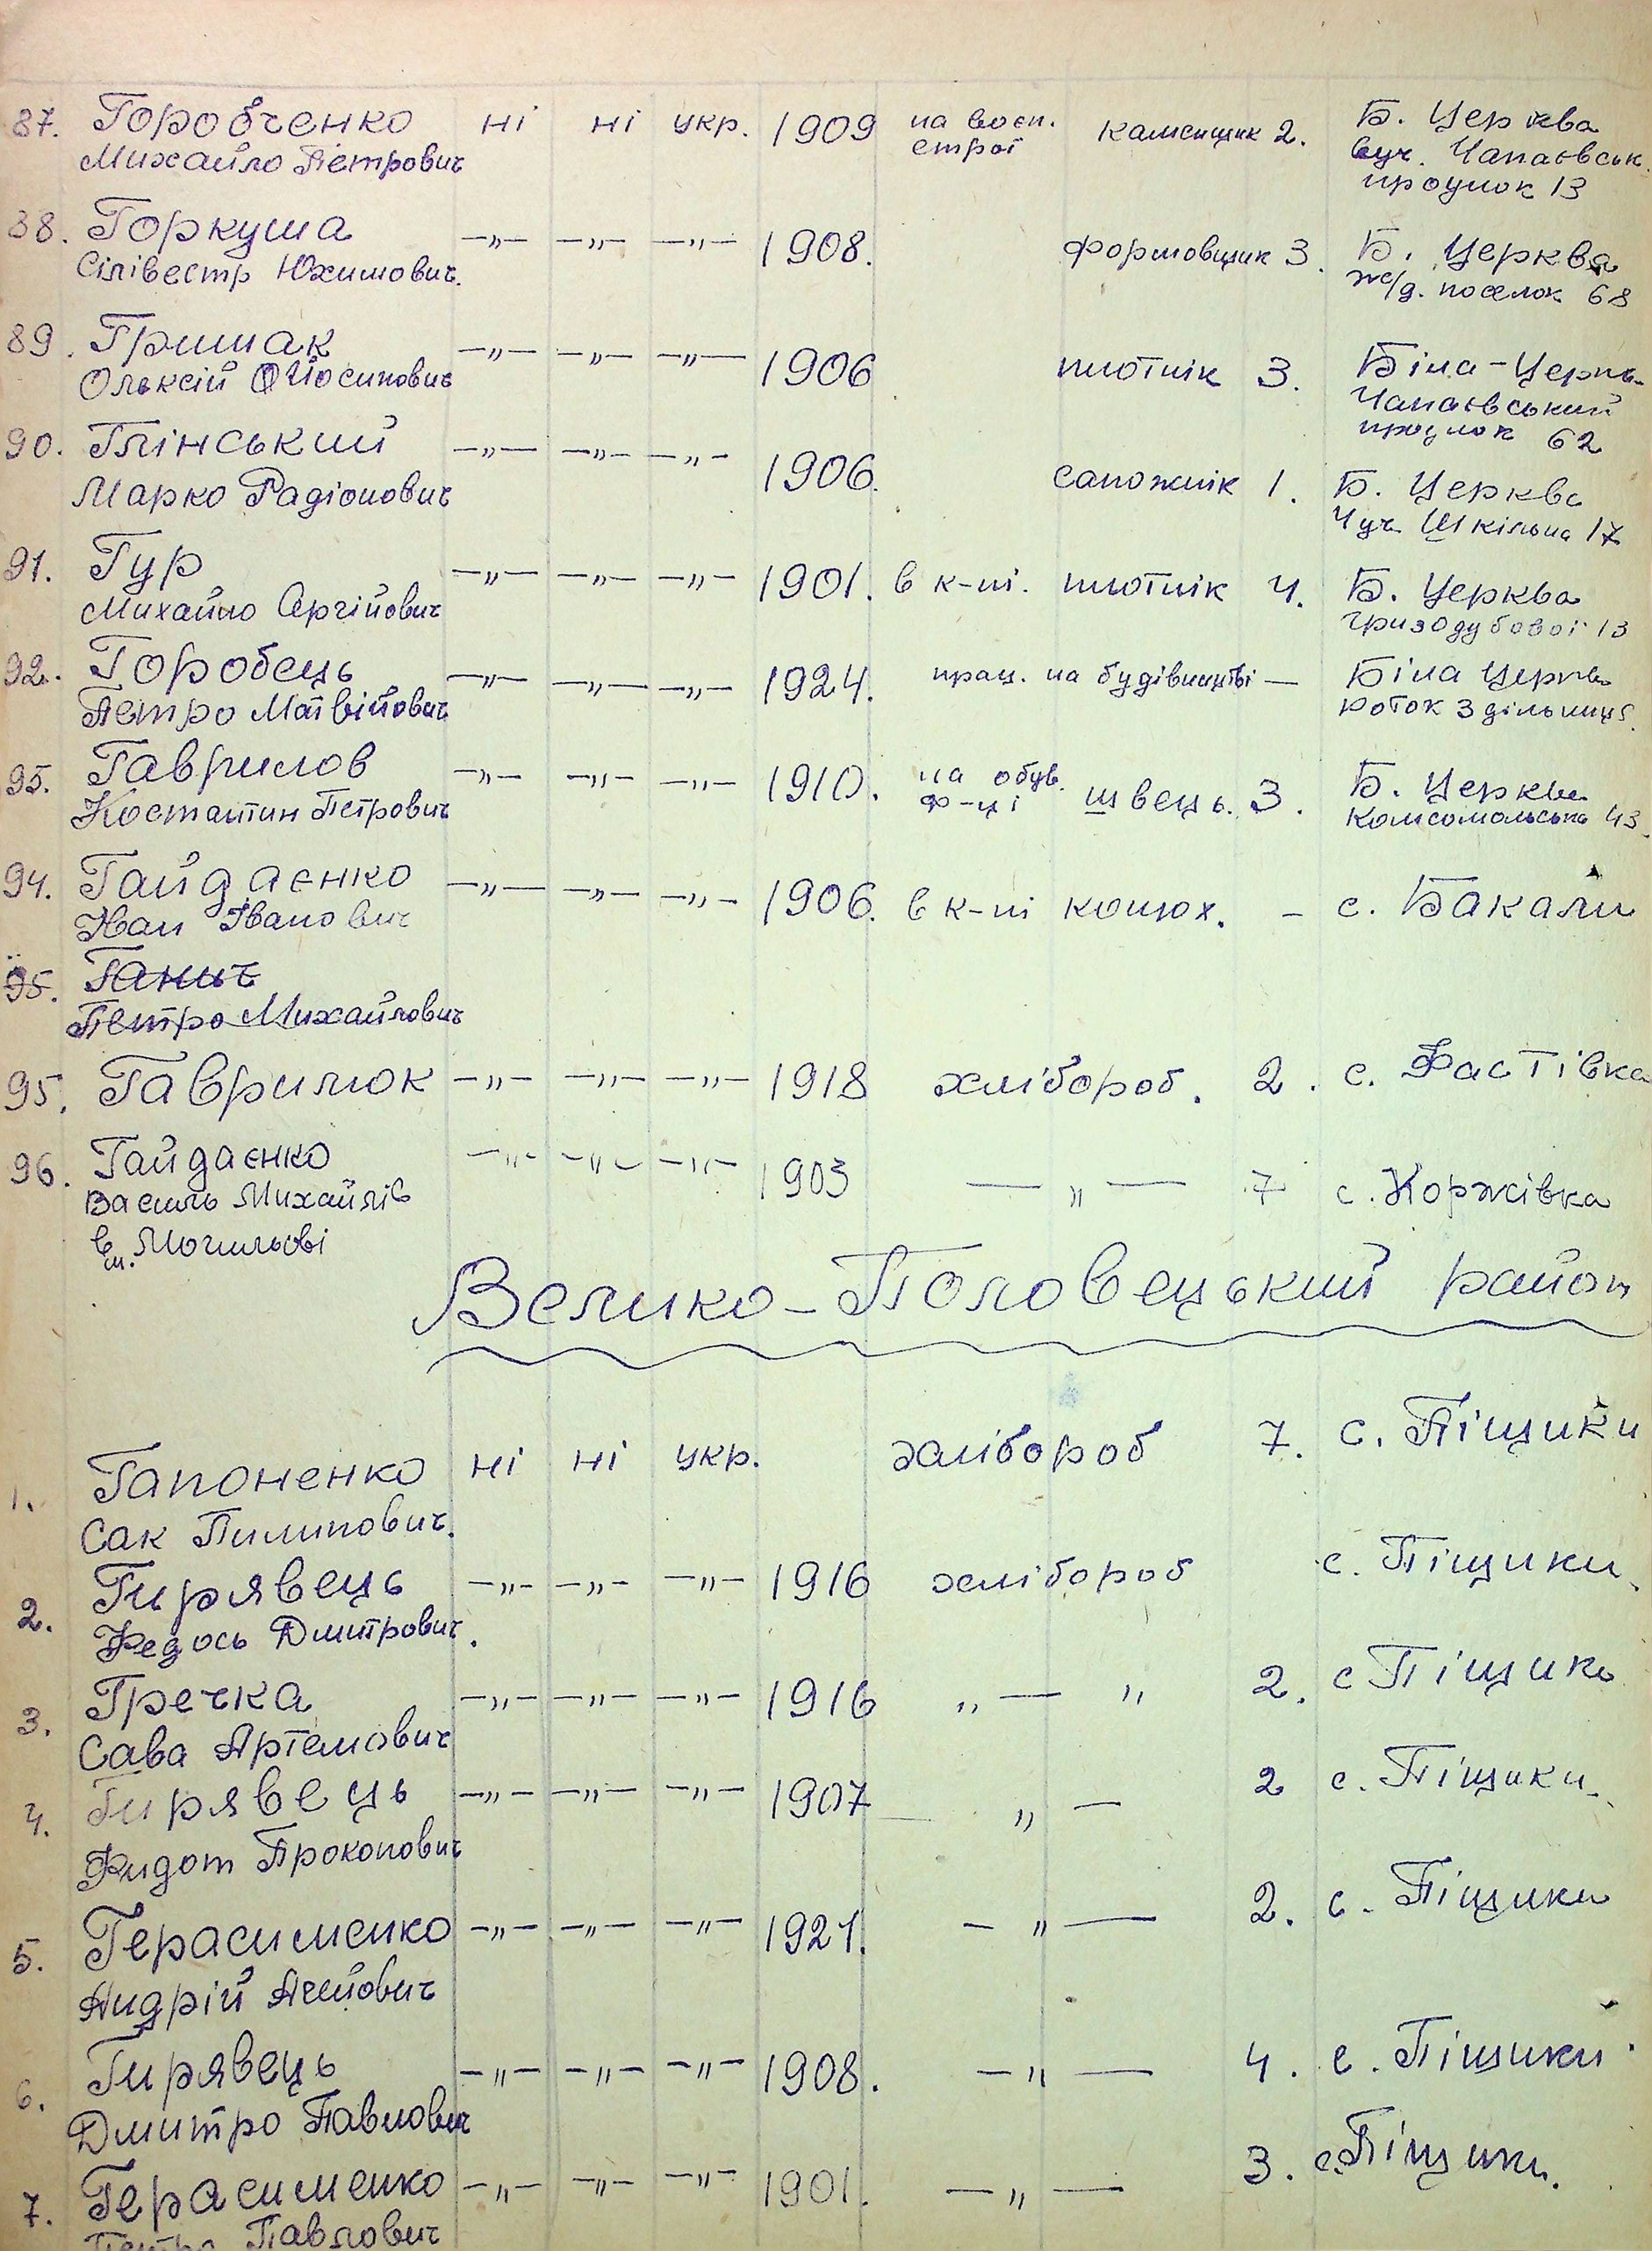 87. Горобченко ні ні укр. 1909 на воєн. каменщик 2. Б. Церква
Михайло Петрович строі вул. Чапаєвськ.
проулок 13
88. Горкуша —„— —„— —„— 1908. формовщик 3. Б. Церква
Сілівестр Юхимович. ж/д. поселок 68
89. Гришак —„— —„— —„— 1906 плотнік 3. Біла-Церкв.
Олексій Йосипович Чапаєвський
проулок 62
90. Глінський —„— —„— —„— 1906. сапожнік 1. Б. Церква
Марко Радіонович Шкільна 17
91. Гур —„— —„— —„— 1901. в к-пі. плотнік 4. Б. Церква
Михайло Сергійович Гризодубової 13
92. Горобець —„— —„— —„— 1924. прац. на будівництві — Біла Церкв
Петро Матвійович Роток 3 дільниця.
93. Гаврилов —„— —„— —„— 1910. на обув. швець. 3. Б. Церква
Костантин Петрович ф-ці Комсомольська 43.
94. Гайдаєнко —„— —„— —„— 1906. в к-пі конюх. – с. Бакали
Іван Іванович
95. Ганич
Петро Михайлович
95. Гаврилюк —„— —„— —„— 1918 хлібороб. 2. с. Фастівка
96. Гайдаєнко —„— —„— —„— 1903 —„— 7 с. Коржівка
Василь Михайлів
в м. Могильові
Велико-Половецький район
1. Гапоненко ні ні укр. хлібороб 7. с. Піщики
Сак Пилипович.
2. Гирявець —„— —„— —„— 1916 хлібороб с. Піщики.
Федось Дмитрович.
3. Гречка —„— —„— —„— 1916 „—„ 2. с Піщики
Сава Артемович
4. Гирявець —„— —„— —„— 1907 —„— 2 с. Піщики.
Фидот Прокопович
5. Герасименко —„— —„— —„— 1921. —„— 2. с. Піщики
Андрій
6. Гирявець —„— —„— —„— 1908. —„— 4. с. Піщики
Дмитро Павлович
7. Герасименко —„— —„— —„— 1901. —„— 3. с. Піщики.
Петро Павлович